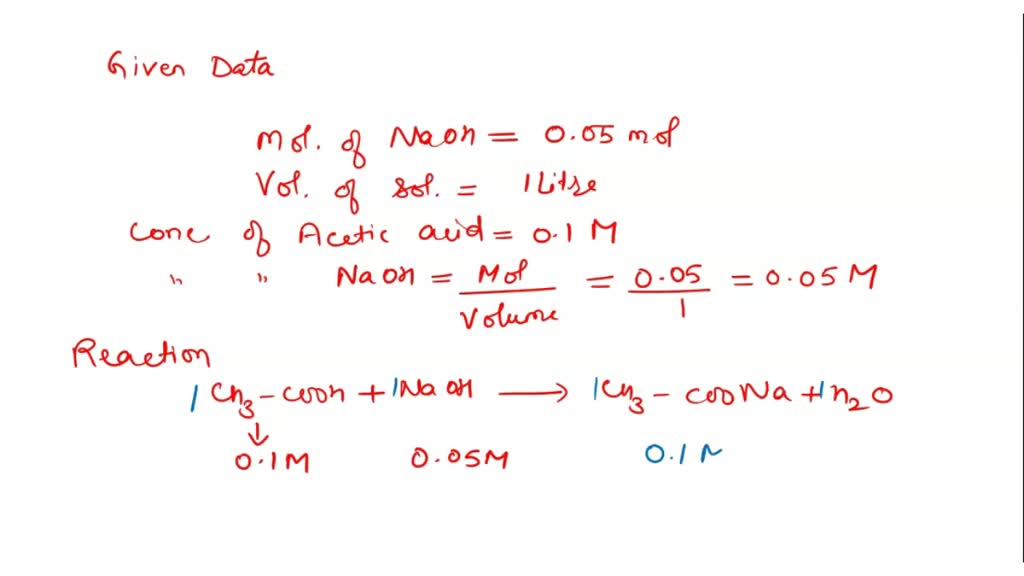 Given Data
Mol. of NaOH = 0.05 mol
Vol. of Sol. = 1 Litre
Conc of Acetic acid = 0.1 M
" " NaOH = Mol / Volume = 0.05 / 1 = 0.05 M
Reaction
1 CH3 - COOH + 1 NaOH → 1 CH3 - COONa + 1 H2O
↓
0.1 M 0.05 M 0.1 M